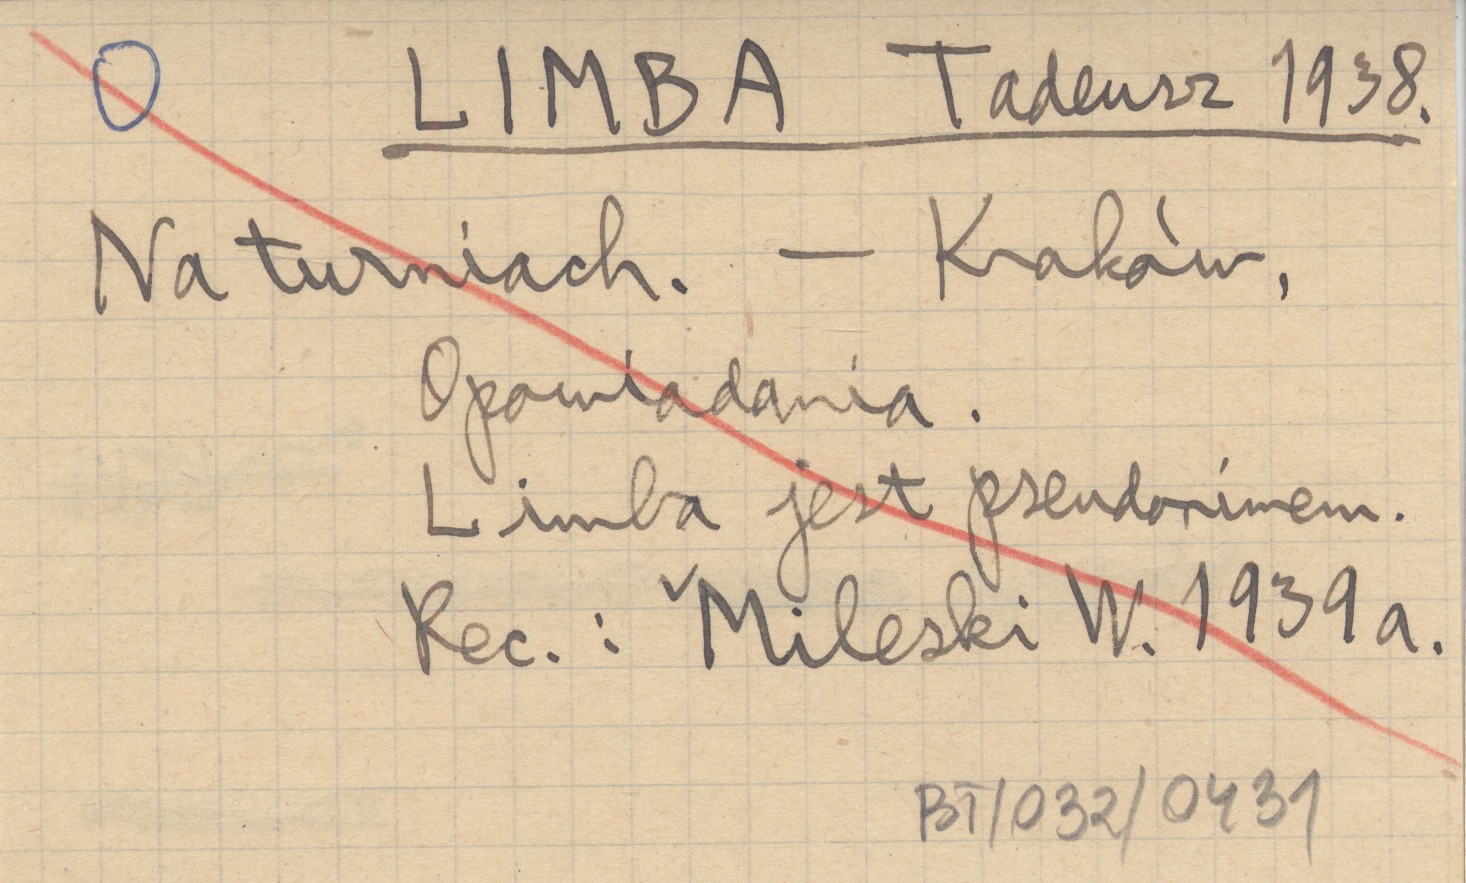 O LIMBA Tadeusz 1938.
Na turniach. — Kraków,
Opowiadania.
Limba jest pseudonimem.
Rec.: ✓Mileski W. 1939a.
BT/032/0431